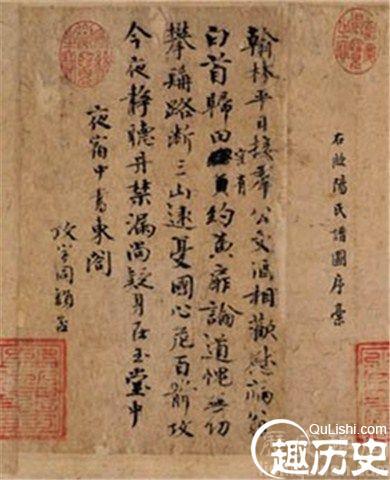 右歐陽氏譜圖序藁
翰林平日接羣公文酒相歡慰病翁
白首歸田空有約黃扉論道愧無功
攀髯路斷三山遠憂國心危百箭攻
今夜靜聽丹禁漏尚疑身在玉堂中
夜宿中書東閣
攻字同韻否
QuLishi.com
趣历史